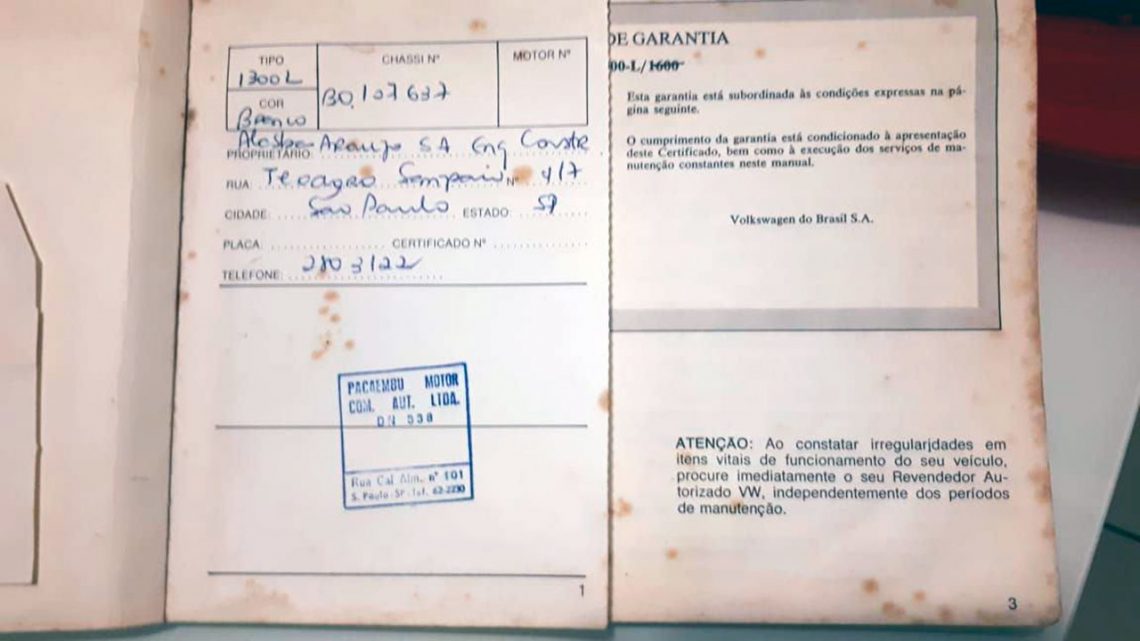 TIPO
1300 L
CHASSI Nº
BO,107637
MOTOR Nº
COR
Branco
Araujo SA Eng Constr
PROPRIETÁRIO:
RUA: Sampaio Nº 417
CIDADE: Sao Paulo ESTADO: SP
PLACA: CERTIFICADO Nº
TELEFONE: 280 3122
PACAEMBU MOTOR
COM. AUT. LTDA.
DN 538
Rua Cal Alm. nº 101
S. Paulo-SP-Tel. 62-2230
1
DE GARANTIA
00-L/1600
Esta garantia está subordinada às condições expressas na pá-
gina seguinte.
O cumprimento da garantia está condicionado à apresentação
deste Certificado, bem como à execução dos serviços de ma-
nutenção constantes neste manual.
Volkswagen do Brasil S.A.
ATENÇÃO: Ao constatar irregularidades em
itens vitais de funcionamento do seu veículo,
procure imediatamente o seu Revendedor Au-
torizado VW, independentemente dos períodos
de manutenção.
3